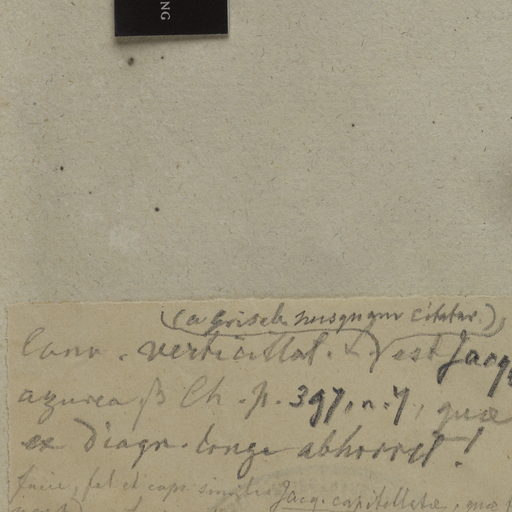 NG
(a Griseb. nusquam citatur),
Conv. verticillat. est Jacq
azurea β Ch. p. 397, n. 7, quae
ex diagn. longe abhorret!
similis Jacq. capitellata, quae